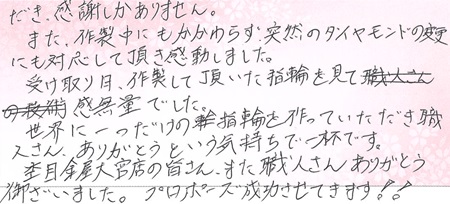 だき、感謝しかありません。
また、作製中にもかかわらず突然のダイヤモンドの変更
にも対応して頂き感動しました。
受け取り日、作製して頂いた指輪を見て職人さん
の技術感無量でした。
世界に一つだけの指輪を作っていただき職
人さん、ありがとうという気持ちで一杯です。
杢目金屋大宮店の皆さん、また職人さんありがとう
御ざいました。プロポーズ成功させてきます!!